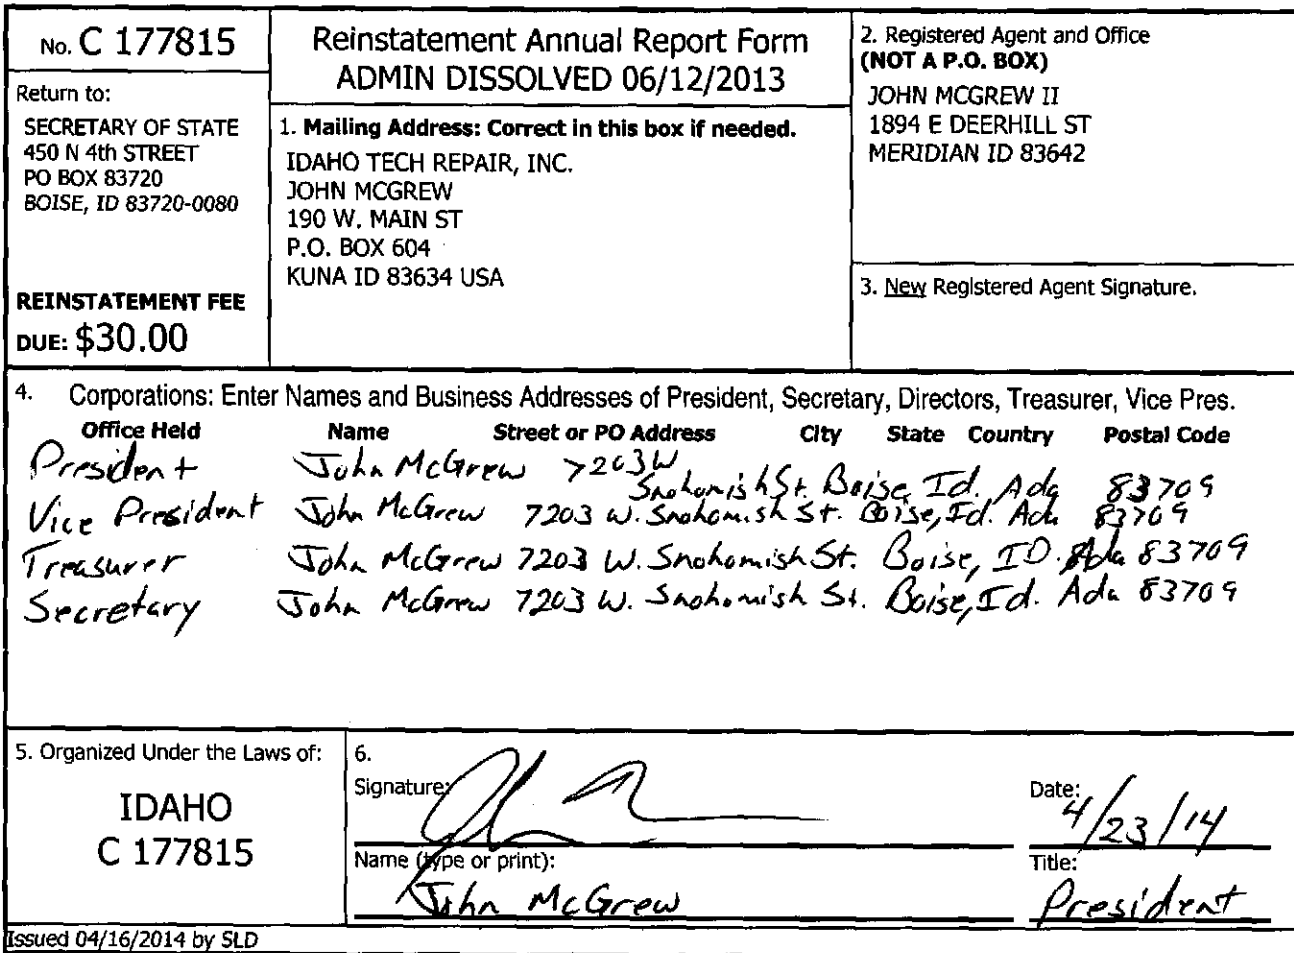 No. C 177815
Return to:
SECRETARY OF STATE
450 N 4th STREET
PO BOX 83720
BOISE, ID 83720-0080
REINSTATEMENT FEE
DUE: $30.00
Reinstatement Annual Report Form
ADMIN DISSOLVED 06/12/2013
1. Mailing Address: Correct in this box if needed.
IDAHO TECH REPAIR, INC.
JOHN MCGREW
190 W. MAIN ST
P.O. BOX 604
KUNA ID 83634 USA
2. Registered Agent and Office
(NOT A P.O. BOX)
JOHN MCGREW II
1894 E DEERHILL ST
MERIDIAN ID 83642
3. New Registered Agent Signature.
4. Corporations: Enter Names and Business Addresses of President, Secretary, Directors, Treasurer, Vice Pres.
Office Held Name Street or PO Address City State Country Postal Code
President John McGrew 7203 W
Snohomish St. Boise, Id. Ada 83709
Vice President John McGrew 7203 W. Snohomish St. Boise, Id. Ada 83709
Treasurer John McGrew 7203 W. Snohomish St. Boise, ID. Ada 83709
Secretary John McGrew 7203 W. Snohomish St. Boise, Id. Ada 83709
5. Organized Under the Laws of:
IDAHO
C 177815
6.
Signature:
Date: 4/23/14
Name (type or print):
John McGrew
Title:
President
Issued 04/16/2014 by SLD